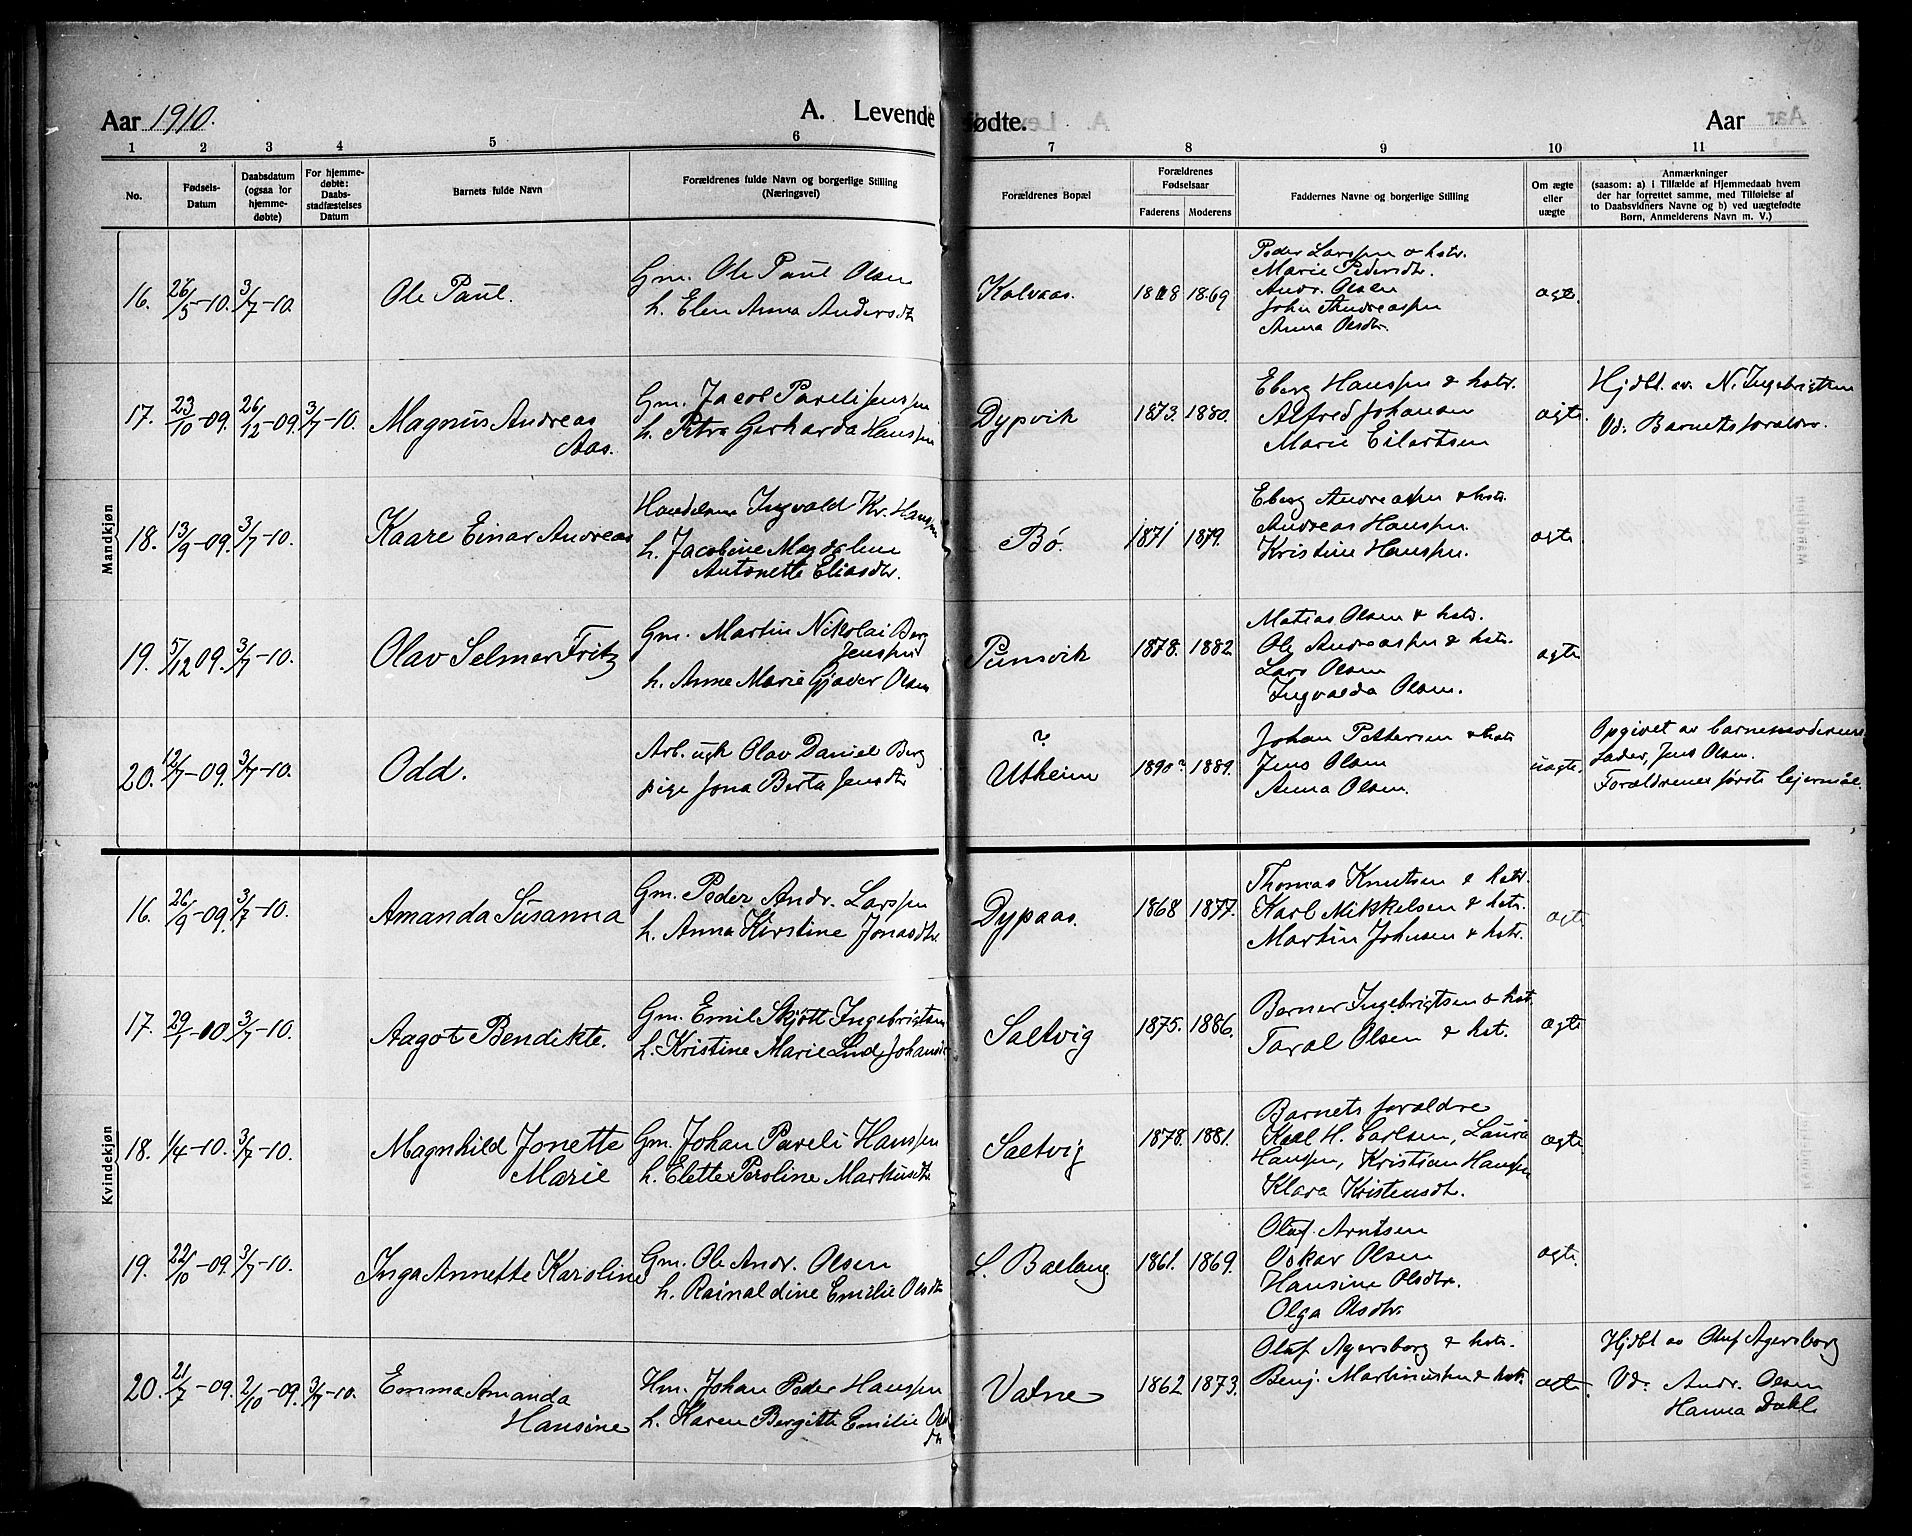 Aar 1910.
A. Levende fødte.
Aar
1 2 3 4 5 6 7 8 9 10 11
No.
Fødsels-
Datum
Daabsdatum
(ogsaa for
hjemme-
døbte)
For hjemme-
døbte:
Daabs-
stadfæstelses
Datum
Barnets fulde Navn
Forældrenes fulde Navn og borgerlige Stilling
(Næringsvei)
Forældrenes Bopæl
Forældrenes
Fødselsaar
Faderens Moderens
Faddernes Navne og borgerlige Stilling
Om ægte
eller
uægte
Anmærkninger
(saasom: a) i Tilfælde af Hjemmedaab hvem
der har forrettet samme, med Tilføielse af
to Daabsvidners Navne og b) ved uægtefødte
Børn, Anmelderens Navn m. V.)
Mandkjøn
16. 26/5-10. 3/7-10. Ole Paul.
Gm. Ole Paul Olsen
h. Elen Anna Andersdtr
Kalvaas. 1869
Peder Larssen & hstr.
Marie Pedersdtr.
Andr. Olsen
John Andreassen
Anna Olsdtr.
ægte
17. 23/10-09. 26/12-09. 3/7-10. Magnus Andreas
Aas.
Gm. Jacob Pareli Jenssen
h. Petra Gerharda Hanssen
Dypvik 1873. 1880.
Eberg Hanssen & hstr.
Alfred Johansen
Marie Eilertsen
ægte
Hjdbt. av N. Ingebrigtsen
Vd. Barnets foreldre.
18. 13/9-09. 3/7-10. Kaare Einar Andreas
Handelsm. Ingvald Kr. Hanssen
h. Jacobine Magdalene
Antonette Eliasdtr.
Bø. 1871 1879.
Eberg Andreassen & hstr.
Andreas Hanssen.
Kristine Hanssen.
ægte
19. 5/12 09. 3/7-10. Olav Selmer Fritz
Gm. Martin Nikolai Berg
Jenssen
h. Anne Marie Gjæver Olsen
Punsvik 1878. 1882
Matias Olsen & hstr.
Ole Andreassen & hstr.
Lars Olsen
Ingvalda Olsen.
ægte
20. 12/7-09. 3/7-10. Odd.
Arb. ugk Olav Daniel Berg
pige Jona Berta Jensdtr
?
Utheim 1890? 1889.
Johan Pettersen & hstr
Jens Olsen
Anna Olsen.
uægte.
Opgivet av barnemoderens
fader, Jens Olsen.
Forældrenes første leiermål.
Kvindekjøn
16. 26/9-09. 3/7-10. Amanda Susanna
Gm. Peder Andr. Larssen
h. Anna Kirstine Jonasdtr.
Dypaas. 1868 1877.
Thomas Knutsen & hstr.
Karl Mikkelsen & hstr.
Martin Johnsen & hstr.
ægt
17. 29/1-10. 3/7-10. Aagot Bendikte.
Gm. Emil Skjött Ingebrigtsen
h. Kristine Marie Lind Johansdtr
Saltvig 1875. 1886.
Berner Ingebrigtsen & hst.
Taral Olsen & hst.
ægte
18. 1/4-10. 3/7-10. Magnhild Jonette
Marie
Gm. Johan Pareli Hanssen
h. Elette Peroline Markusdtr.
Saltvig 1878. 1881.
Barnets foreldre
Karl H. Carlsen, Laura
Hanssen, Kristian Hanssen
Klara Kristensdtr.
ægte
19. 22/10-09. 3/7-10. Inga Annette Karoline
Gm. Ole Andr. Olsen
h. Rainaldine Emilie Olsdtr
L. Ballang. 1861. 1869.
Oluf Arntsen
Oskar Olsen
Hansine Olsdtr.
Olga Olsdtr.
ægte.
20. 21/7-09. 2/10-09. 3/7-10. Emma Amanda
Hansine
Hm. Johan Peder Hanssen
h. Karen Bergitte Emilie Ols
dtr
Vatne 1862 1873.
Oluf Agersborg & hstr.
Benj. Martinussen & hstr.
ægte.
Hjdbt av Oluf Agersborg
Vd. Andr. Olsen
Hanna Dahl